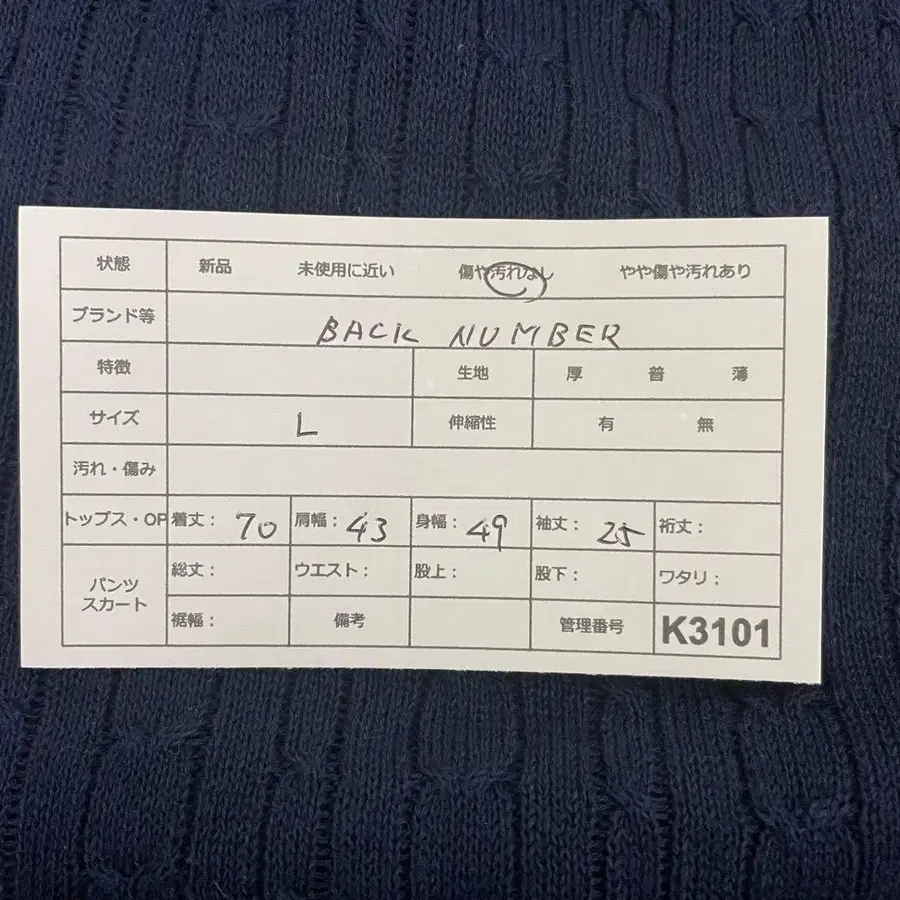 状態 新品 未使用に近い 傷や汚れなし やや傷や汚れあり
ブランド等 BACK NUMBER
特徴 生地 厚 普 薄
サイズ L 伸縮性 有 無
汚れ・傷み
トップス・OP 着丈: 70 肩幅: 43 身幅: 49 袖丈: 25 裄丈:
パンツ 総丈: ウエスト: 股上: 股下: ワタリ:
スカート 裾幅: 備考 管理番号 K3101